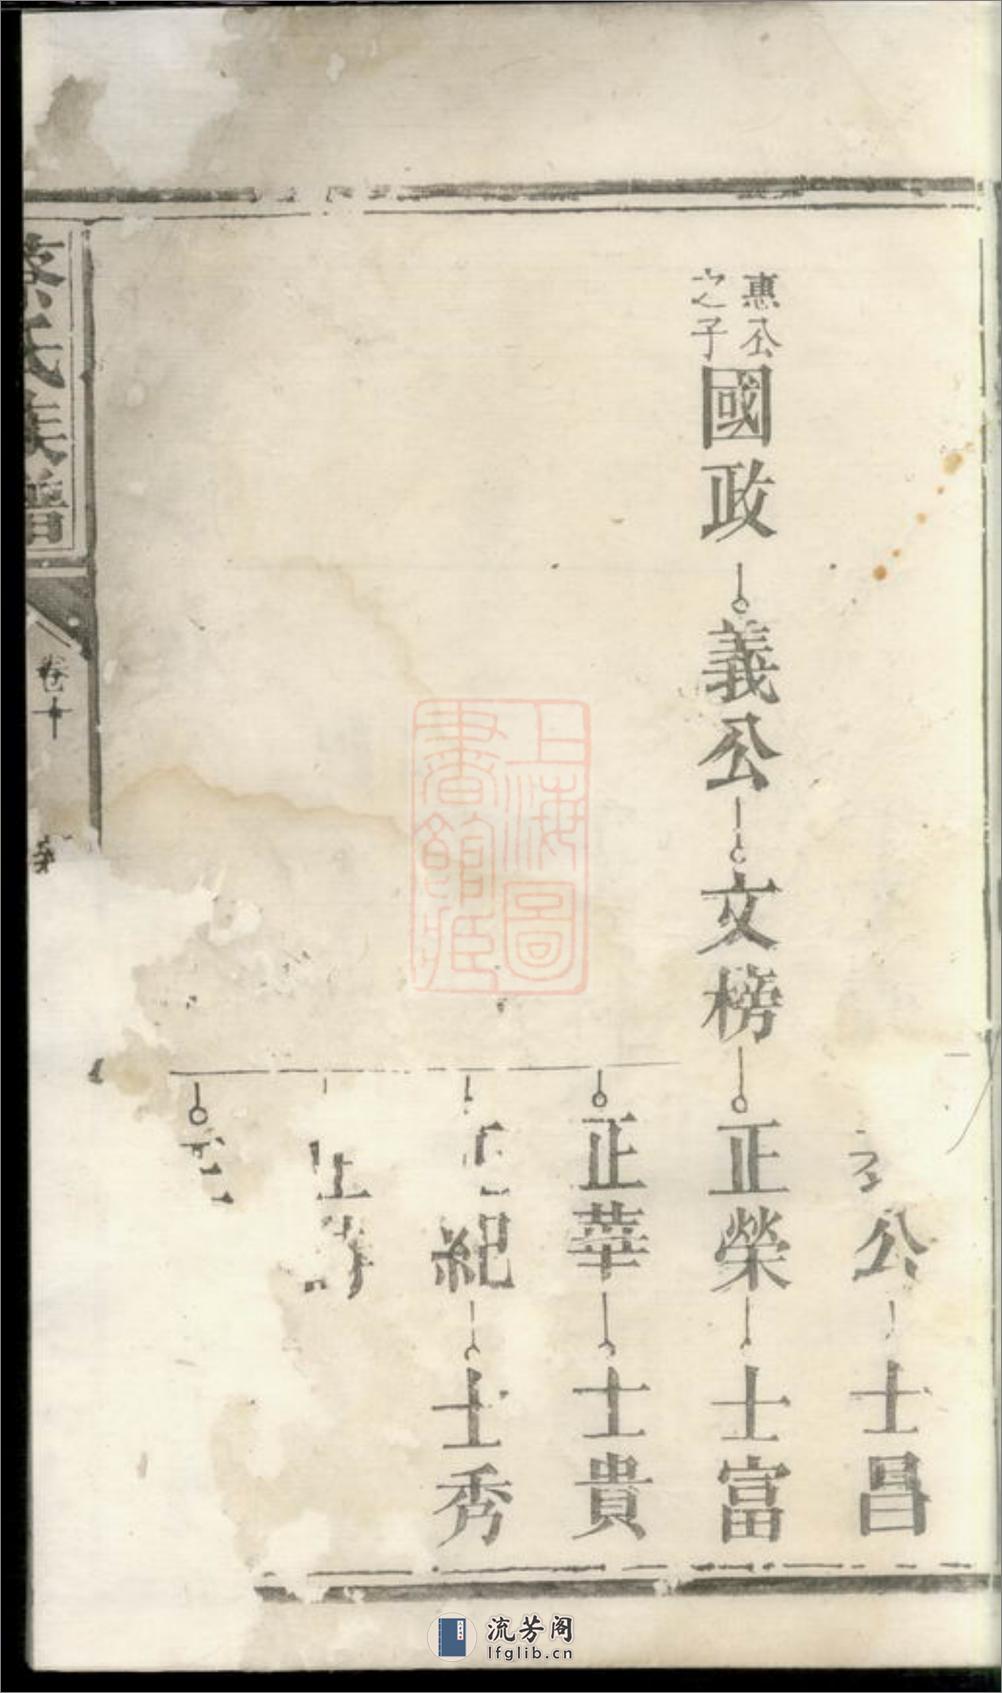 公
士昌
惠公
之子
國政
義公
文榜
正榮
士富
正華
士貴
紀
士秀
氏族譜
卷十
上海圖
書館藏
流芳阁
lfglib.cn